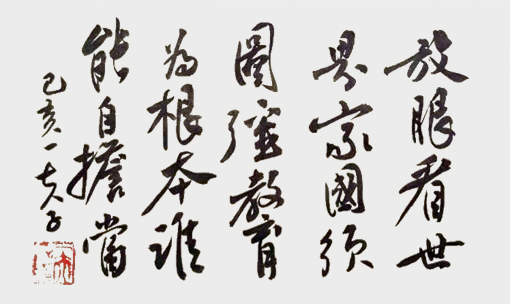 放眼看世
界家國須
圖強教育
為根本誰
能自擔當
己亥一夫子